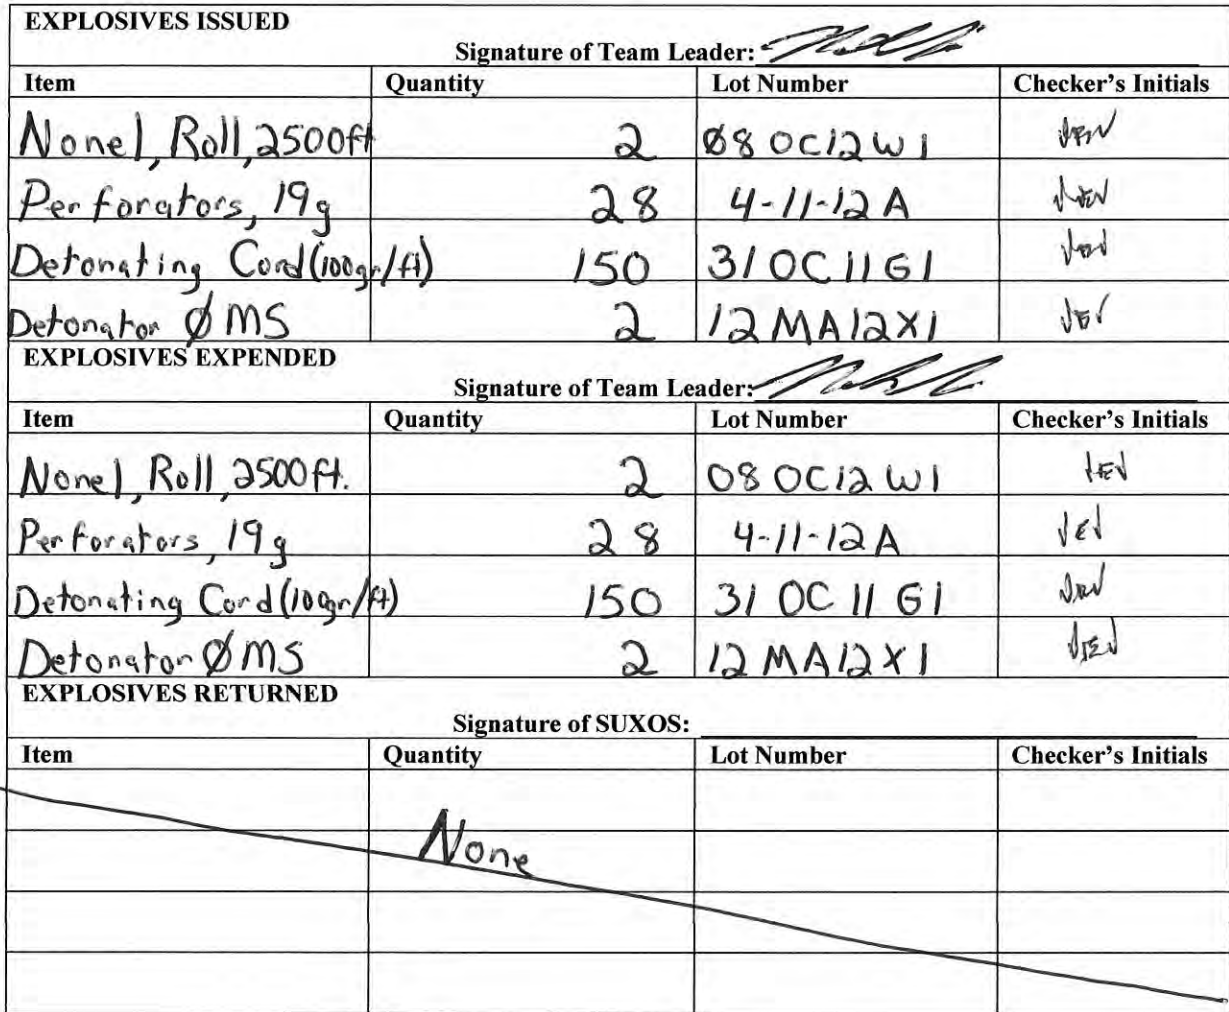 EXPLOSIVES ISSUED
Signature of Team Leader:
Item Quantity Lot Number Checker's Initials
Nonel, Roll, 2500ft 2 Ø8 OC12W1
Perforators, 19g 28 4-11-12A
Detonating Cord (100gr/ft) 150 31 OC 11 G1
Detonator Ø MS 2 12 MA12X1
EXPLOSIVES EXPENDED
Signature of Team Leader:
Item Quantity Lot Number Checker's Initials
Nonel, Roll, 2500ft. 2 08 OC12 W1
Perforators, 19g 28 4-11-12A
Detonating Cord (100gr/ft) 150 31 OC 11 G1
Detonator Ø MS 2 12 MA12X1
EXPLOSIVES RETURNED
Signature of SUXOS:
Item Quantity Lot Number Checker's Initials
None